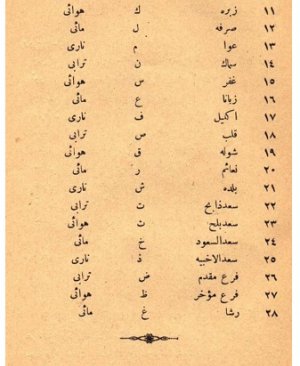 ١١ زبره ك هوائى
١٢ صرفه ل مائى
١٣ عوا م نارى
١٤ سماك ن ترابى
١٥ غفر س هوائى
١٦ زبانا ع مائى
١٧ اكليل ف نارى
١٨ قلب ص ترابى
١٩ شوله ق هوائى
٢٠ نعائم ر مائى
٢١ بلده ش نارى
٢٢ سعدذابح ت ترابى
٢٣ سعدبلع ث هوائى
٢٤ سعدالسعود خ مائى
٢٥ سعدالاخبيه ذ نارى
٢٦ فرع مقدم ض ترابى
٢٧ فرع مؤخر ظ هوائى
٢٨ رشا غ مائى